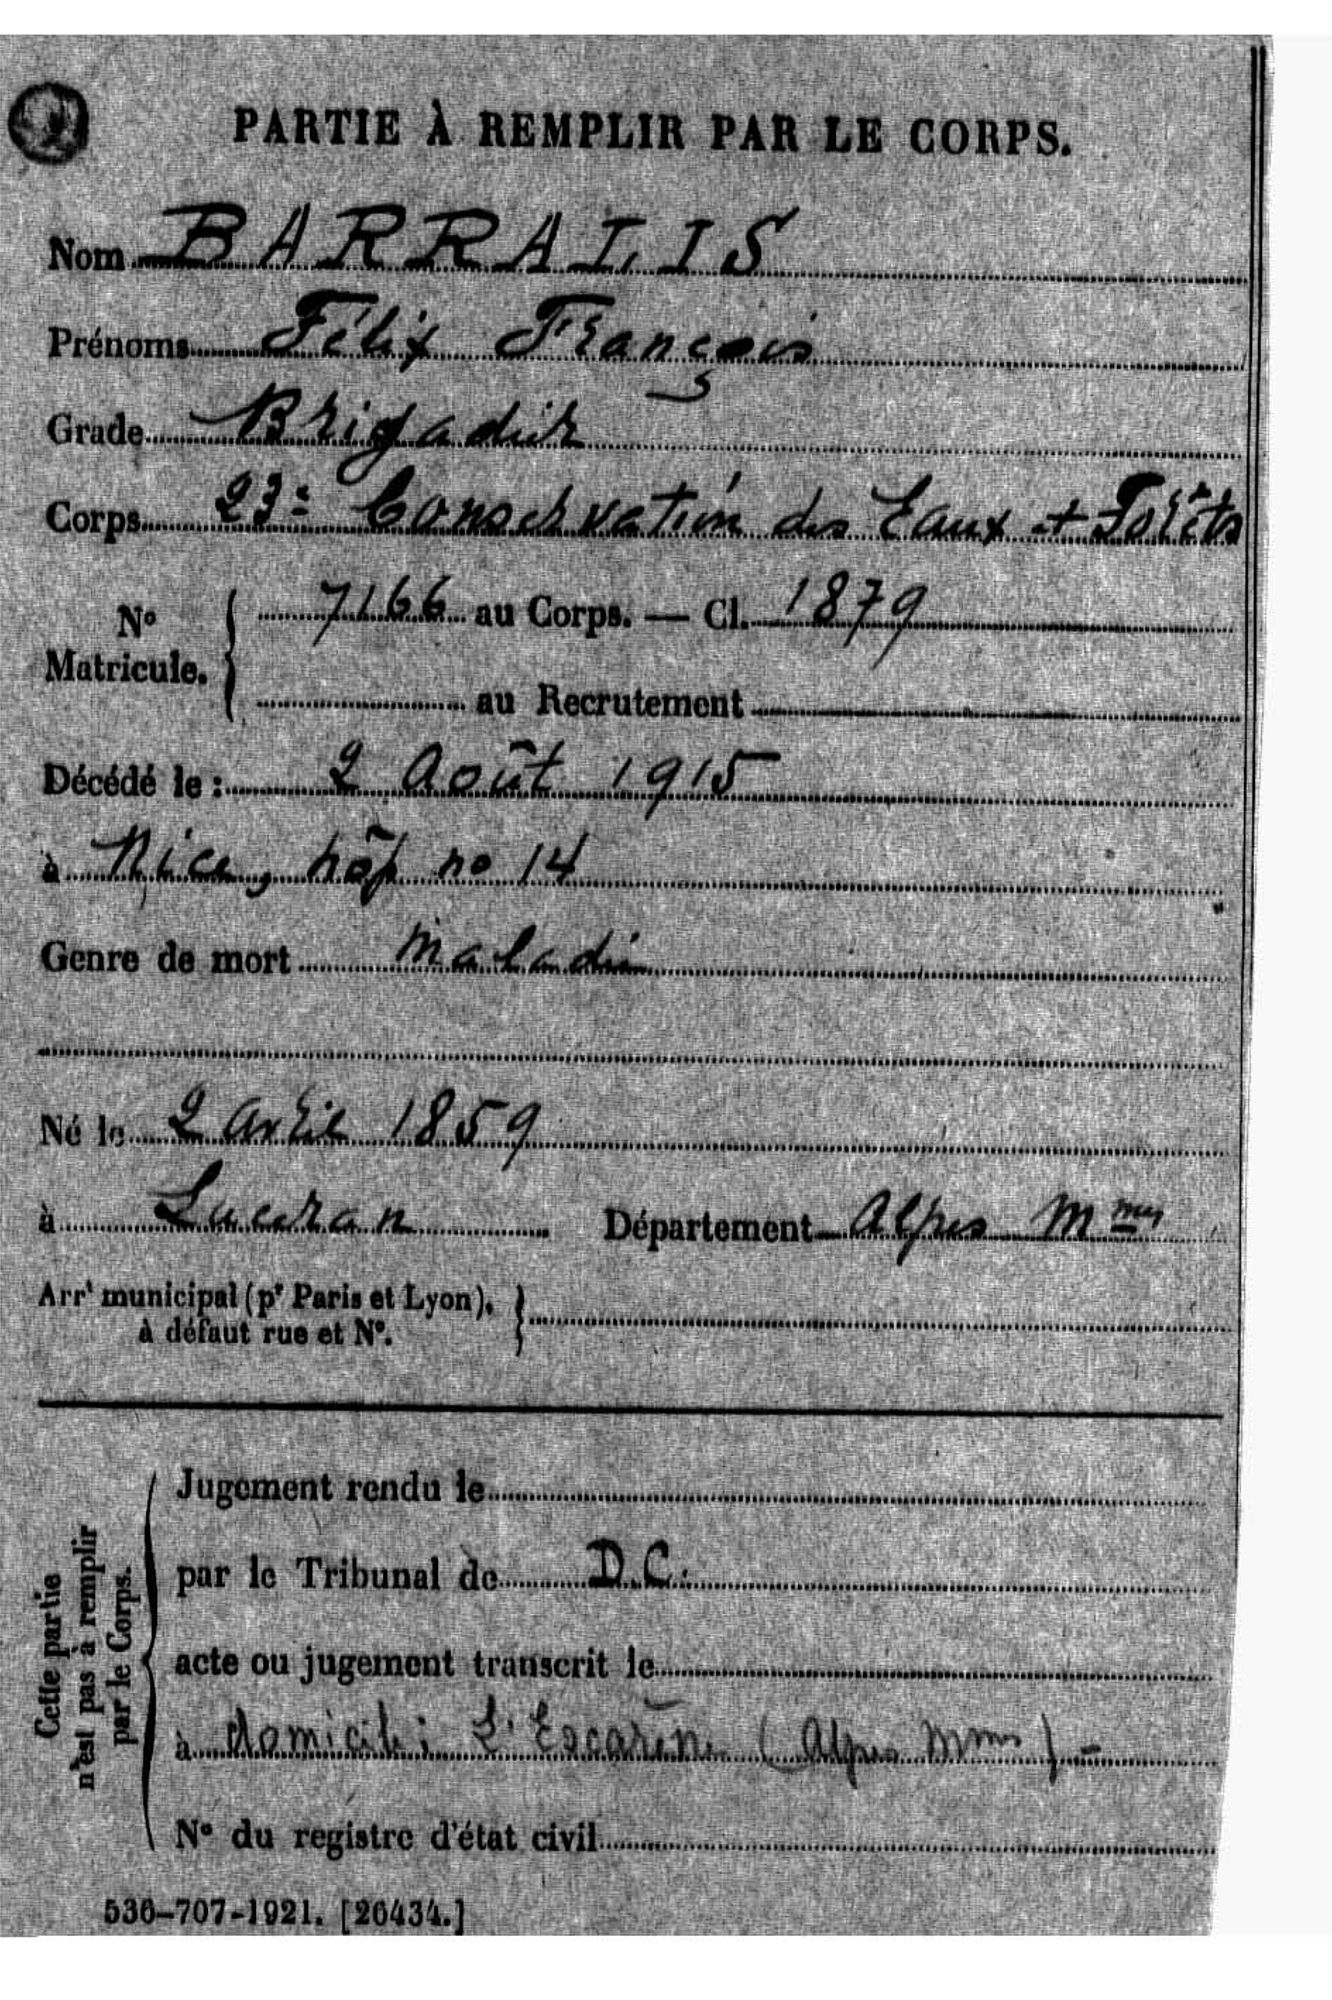 PARTIE À REMPLIR PAR LE CORPS.
Nom BARRALIS
Prénoms Félix François
Grade Brigadier
Corps 23e Conservation des Eaux et Forêts
No Matricule. 7166 au Corps. — Cl. 1879
au Recrutement
Décédé le : 2 Août 1915
à Nice, hôp no 14
Genre de mort Maladie
Né le 2 Avril 1859
à Luceran Département Alpes Mmes
Arrt municipal (pr Paris et Lyon), à défaut rue et No.
Cette partie n'est pas à remplir par le Corps.
Jugement rendu le
par le Tribunal de D.C.
acte ou jugement transcrit le
à domicile : L'Escarène (Alpes Mmes) -
No du registre d'état civil
536-707-1921. [26434.]